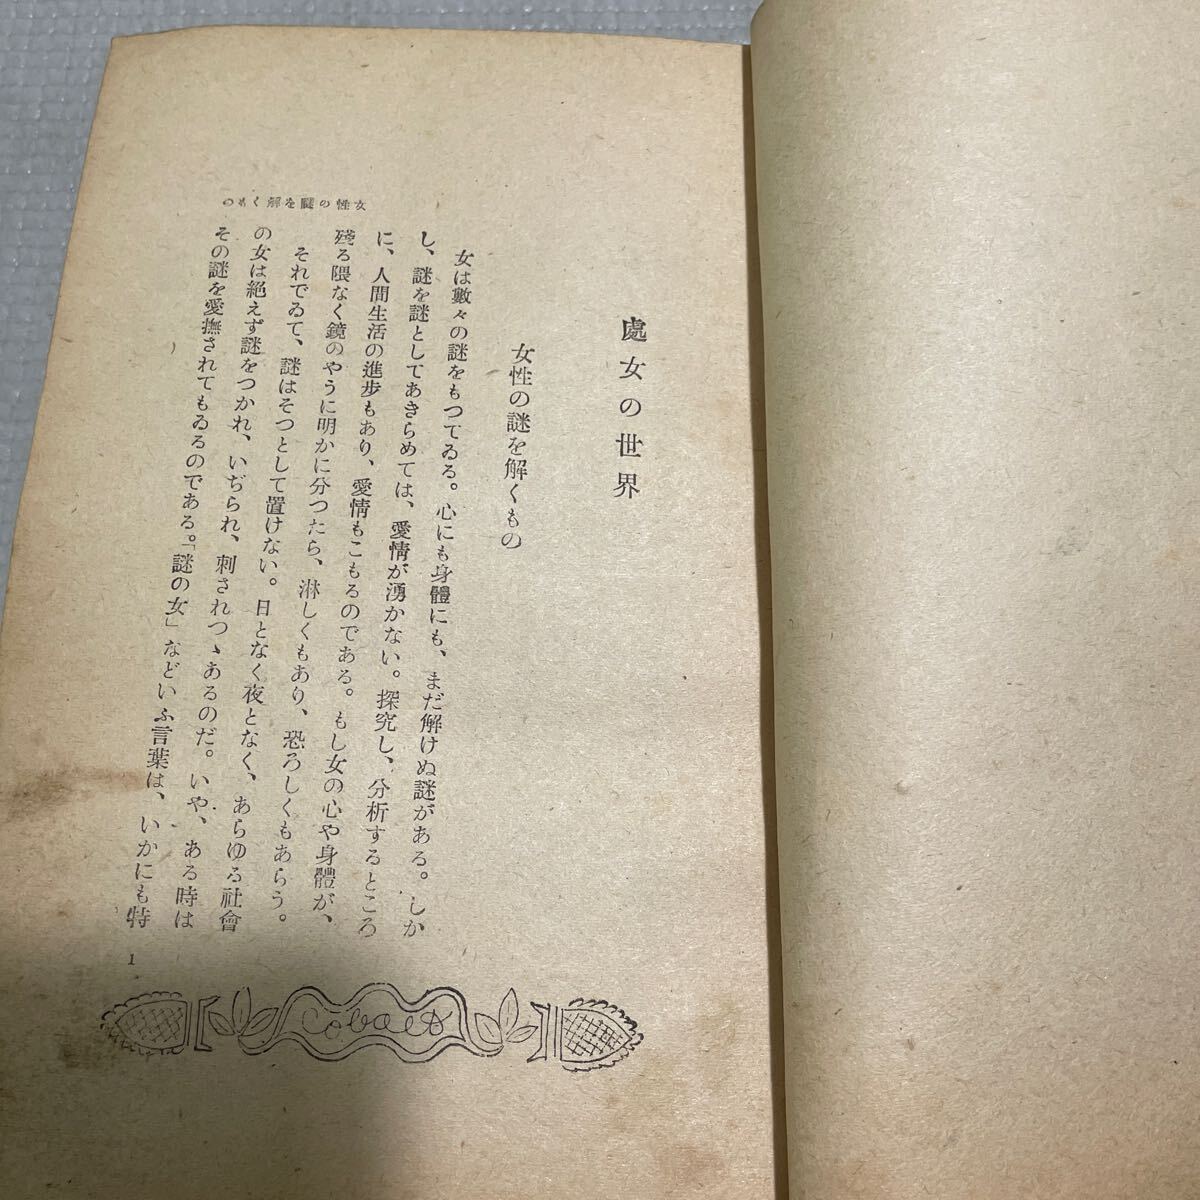 處女の世界
女性の謎を解くもの
女は數々の謎をもつてゐる。心にも身體にも、まだ解けぬ謎がある。しか
し、謎を謎としてあきらめては、愛情が湧かない。探究し、分析するところ
に、人間生活の進步もあり、愛情もこもるのである。もし女の心や身體が、
殘る隈なく鏡のやうに明かに分つたら、淋しくもあり、恐ろしくもあらう。
それでゐて、謎はそつとして置けない。日となく夜となく、あらゆる社會
の女は絕えず謎をつかれ、いぢられ、刺されつゝあるのだ。いや、ある時は
その謎を愛撫されてもゐるのである。「謎の女」などいふ言葉は、いかにも特
女性の謎を解くもの
1
Cobalt